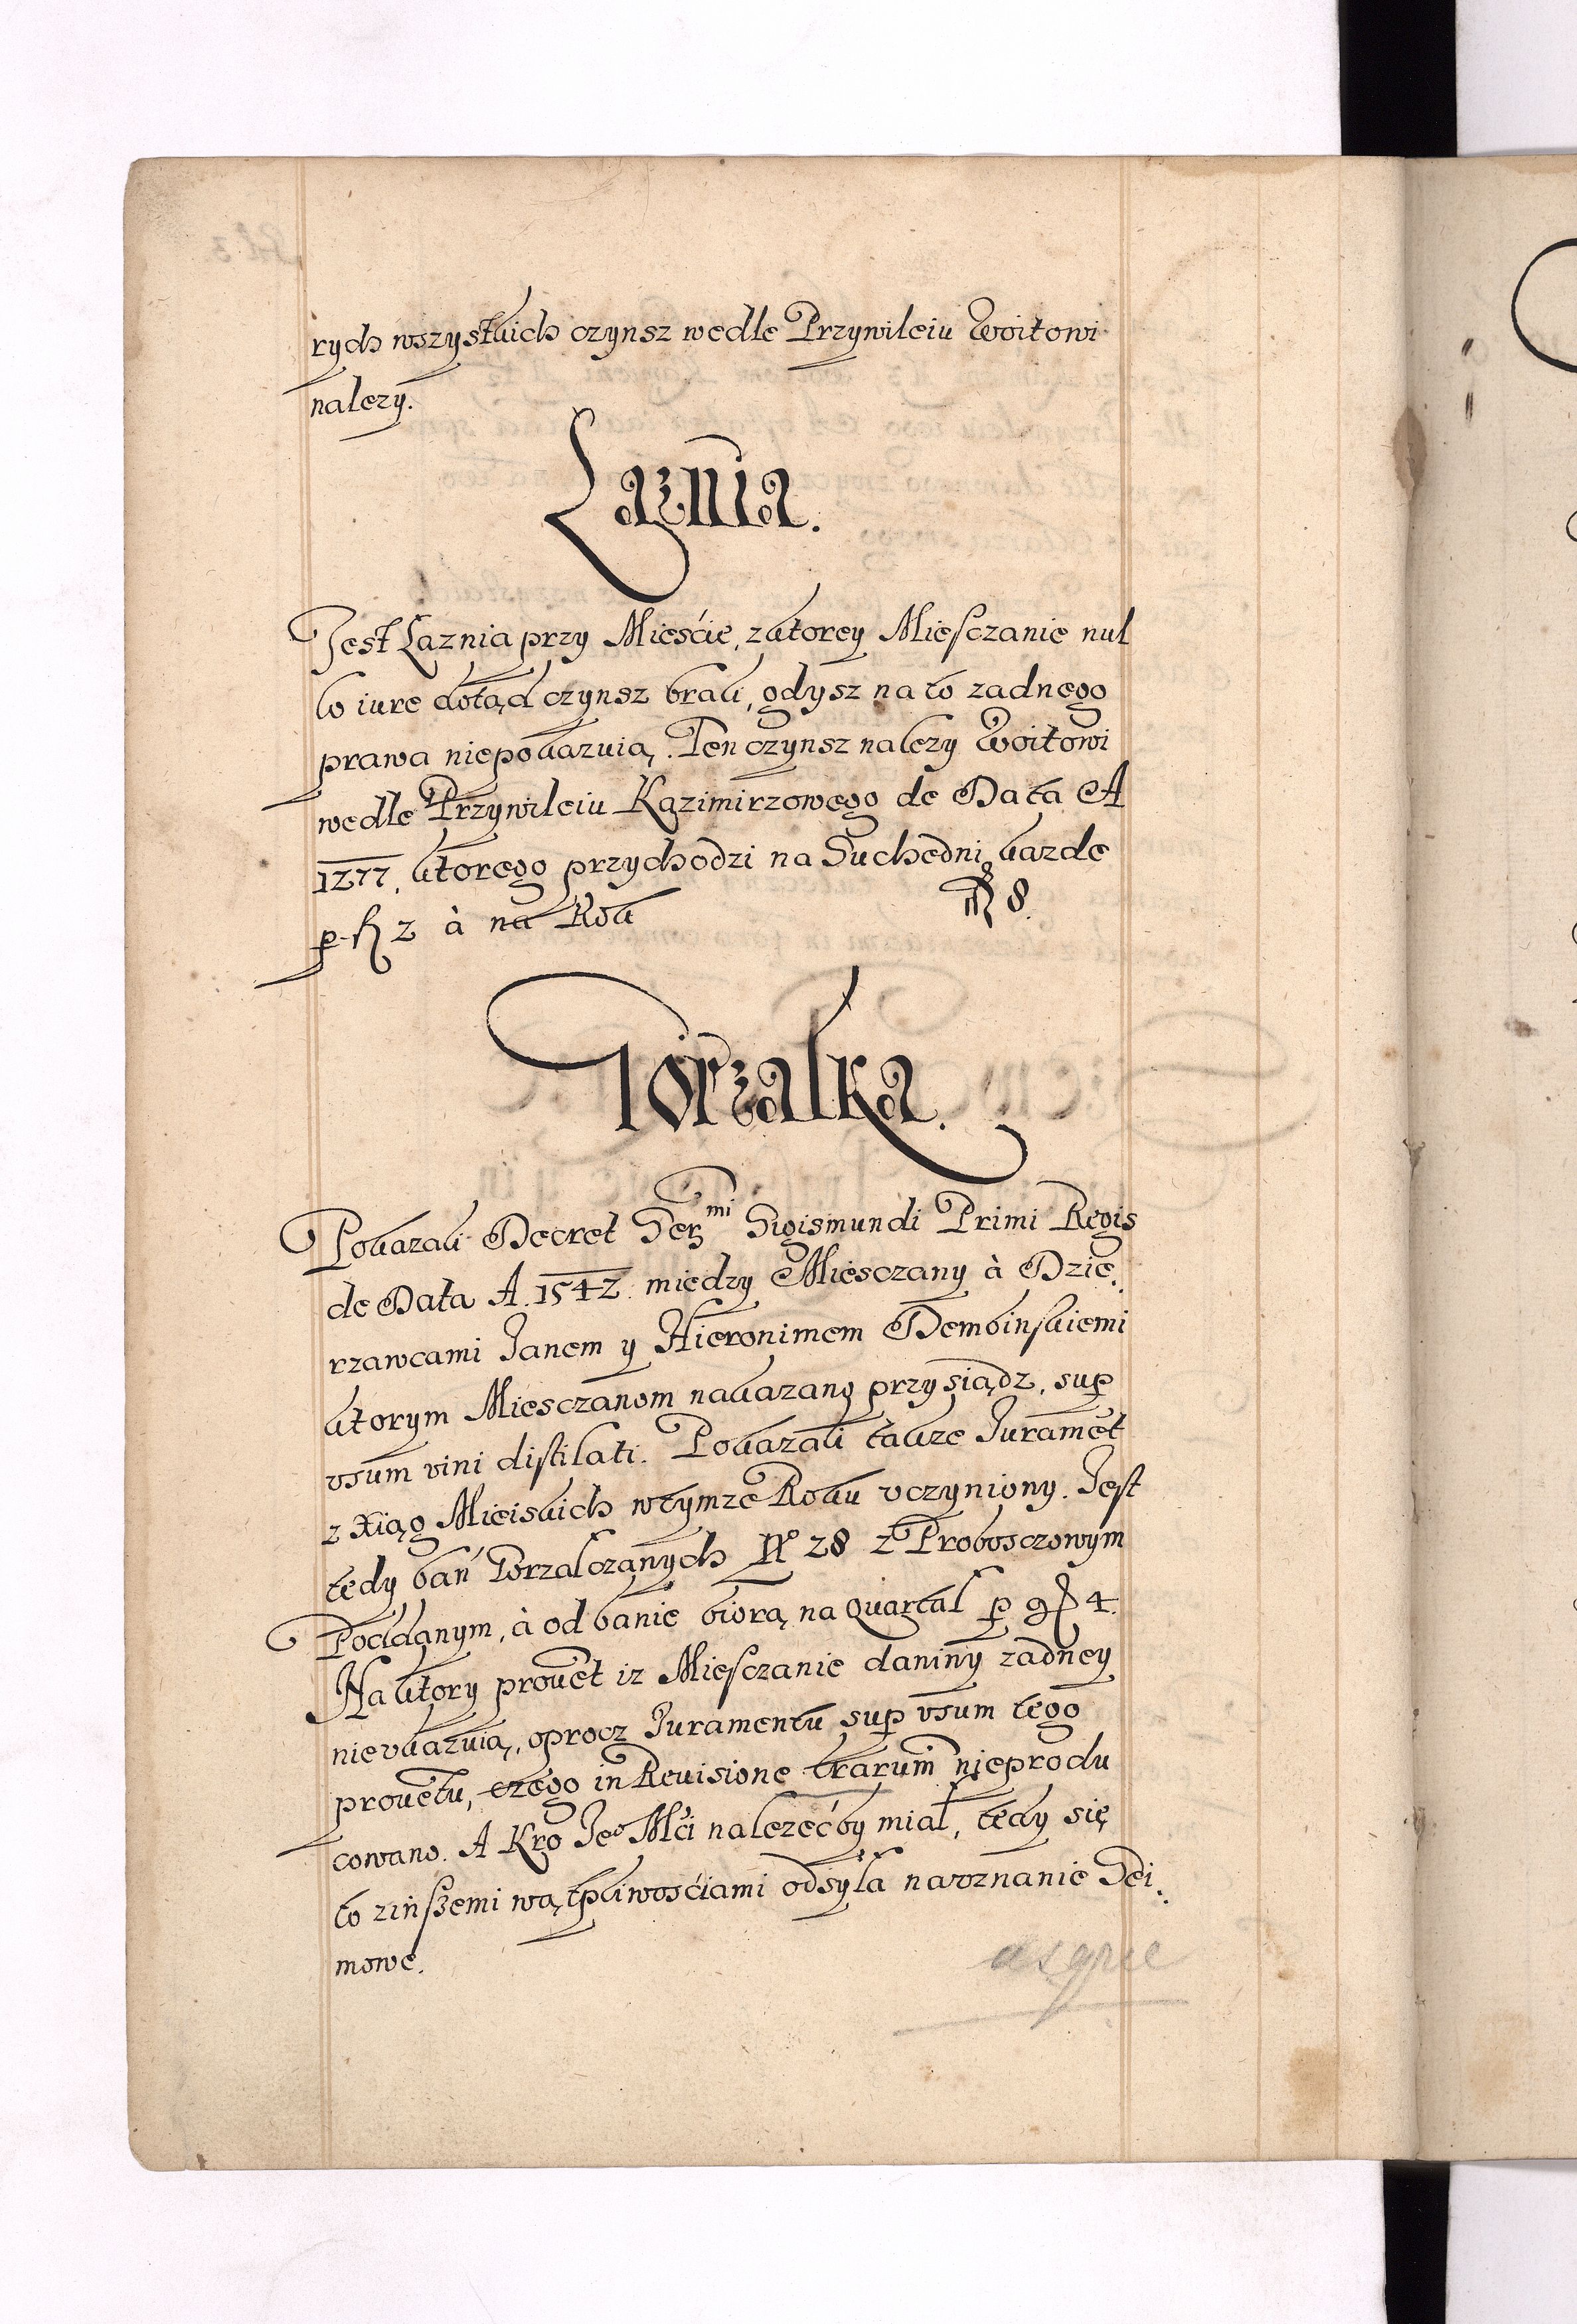 rych wszystkich czynsz wedle Przywileiu Woitowi
nalezy.
Laznia.
Jest Laznia przy Mieście, z ktorey Miesczanie nul
lo iure dotąd czynsz brali, gdysz na to zadnego
prawa niepokazuią. Ten czynsz nalezy Woitowi
wedle Przywileiu Kazimirzowego de Data A
1277, ktorego przychodzi na Suchedni kazde
p. z à na Rok 8.
Gorzalka.
Pokazali Decret Ser^mi Sigismundi Primi Regis
de Data A. 1542. miedzy Miesczany à Dzie.
rzawcami Janem y Hieronimem Dembinskiemi
ktorym Miesczanom nakazano przysiądz, sup
vsum vini distilati. Pokazali takze Juramēt
z Xiąg Mieiskich w tymze Roku vczyniony. Jest
tedy bań Gorzalczanych No 28 z Proboszczowym
Poddanym, à od banie biorą na Quartal p g 4.
Na ktory prouēt iz Miesczanie daniny zadney
nievkazuią, oprocz Juramentu sup vsum tego
prouētu, czego in Reuisione lrarum nieprodu
cowano. A Kro Jeo Mci nalezeć by miał, tedy się
to z inszemi wątpliwościami odsyła na vznanie Sei.
mowe.